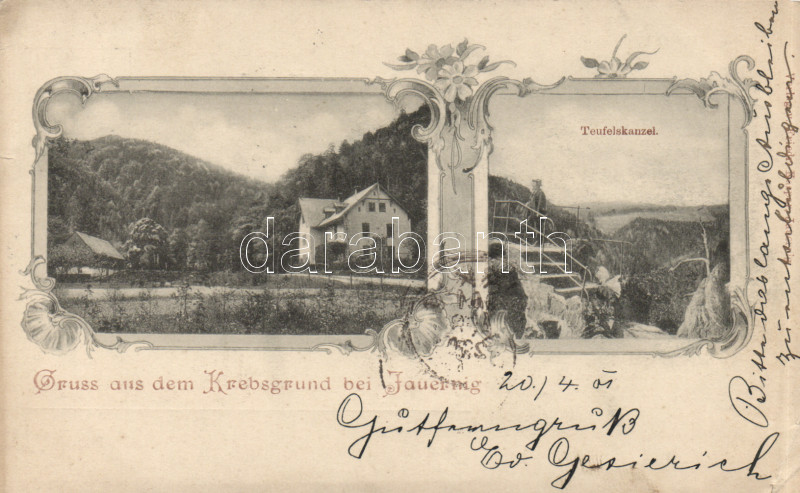 Teufelskanzel.
darabanth
Gruss aus dem Krebsgrund bei Jauernig
20./4. 01
Gutferngruß
Ed. Gesierich
Bitte das lange Ausbleiben
zu